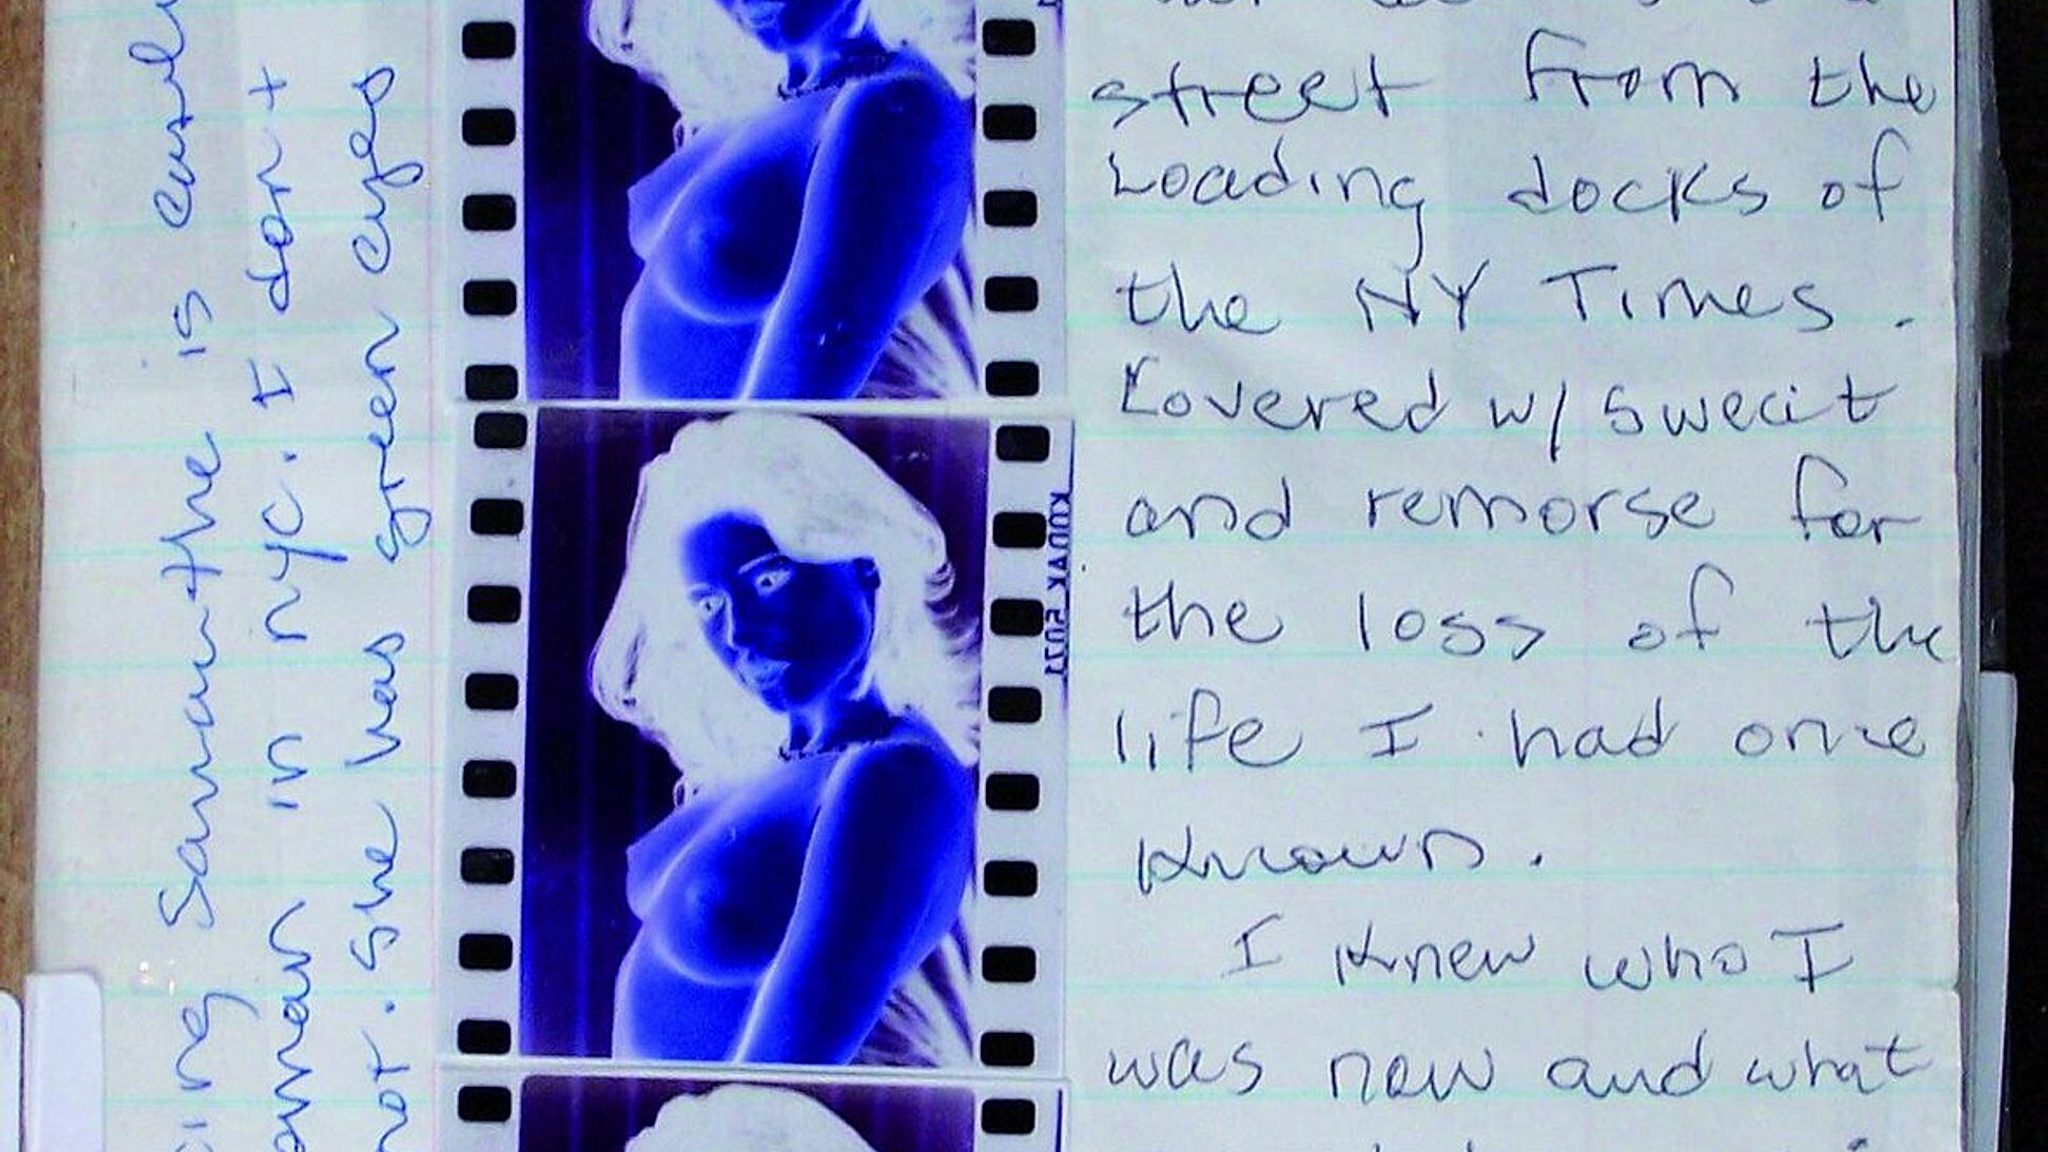 Samanthe is
in nyc. I don't
not. She has green eyes
KODAK
street from the
Loading docks of
the NY Times.
Covered w/ sweat
and remorse for
the loss of the
life I had once
known.
I knew who I
was now and what